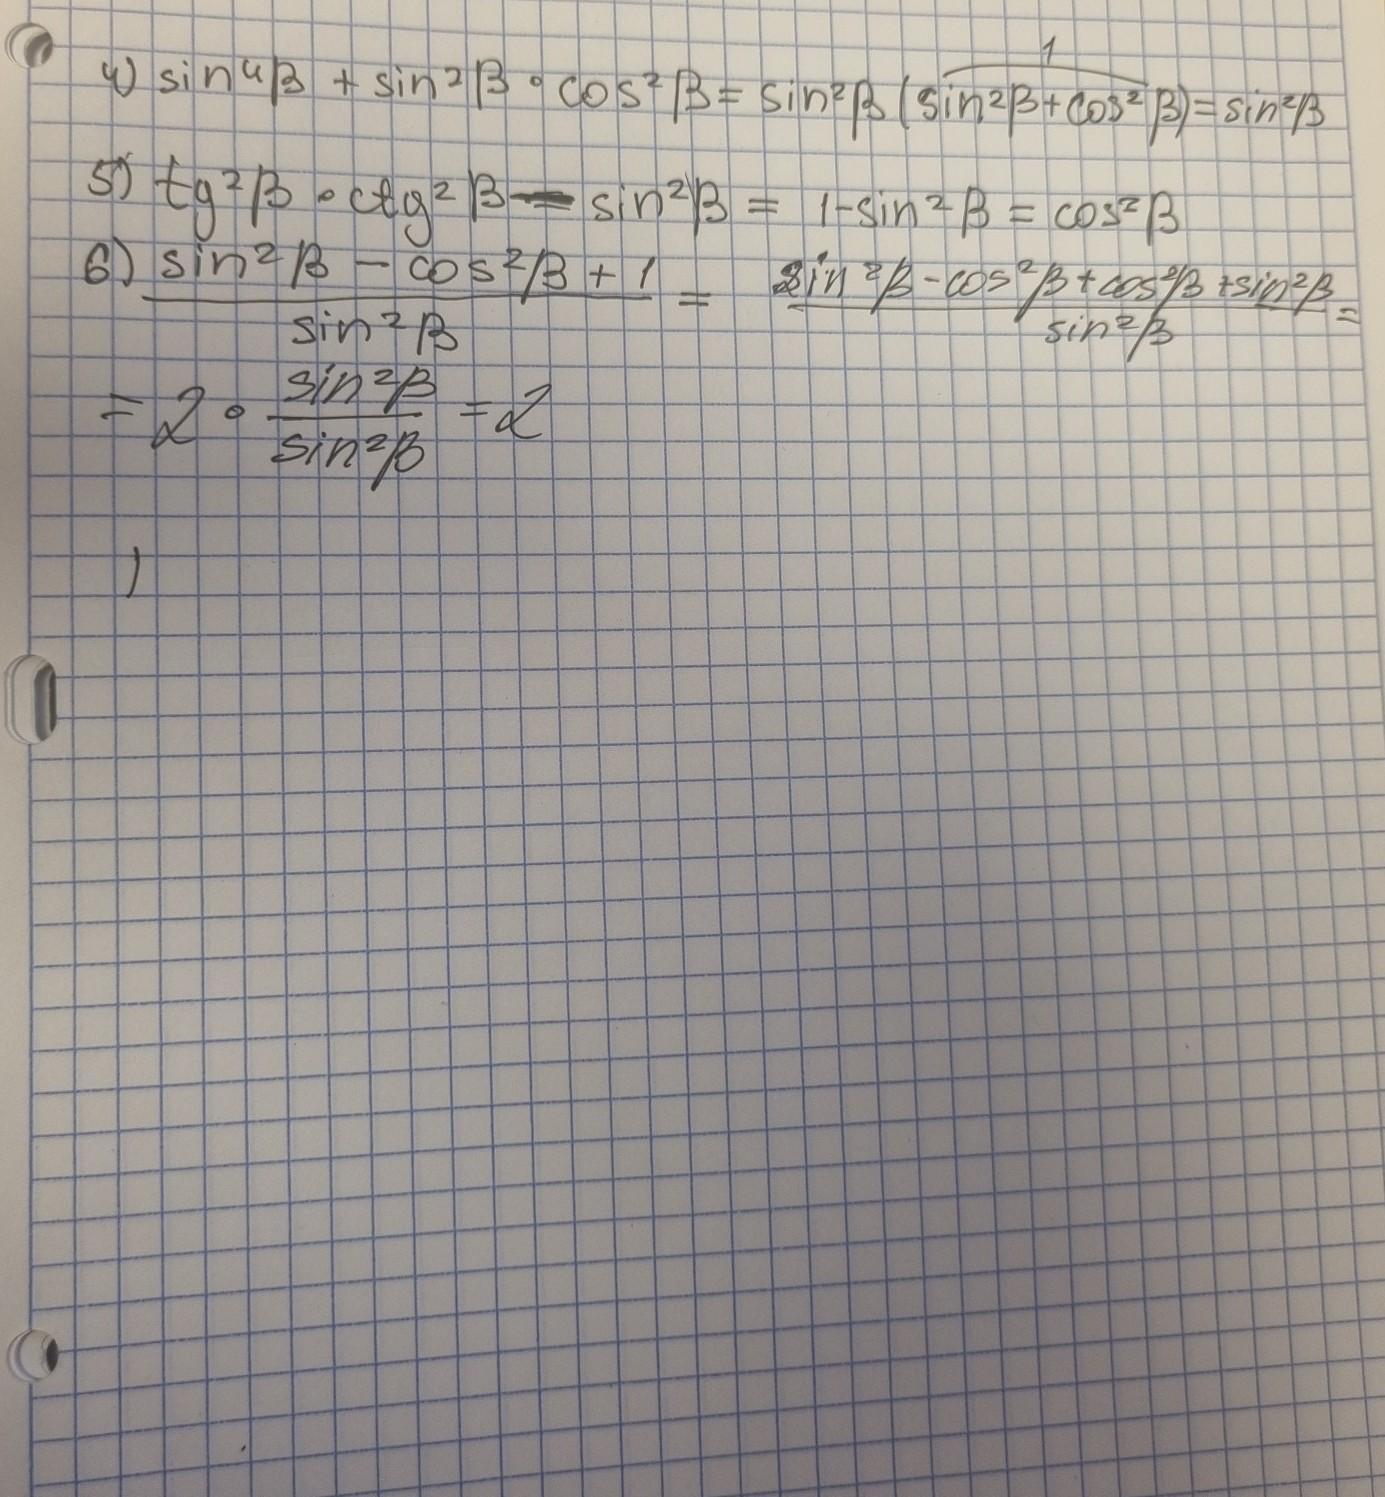 1
4) sin⁴β + sin²β • cos²β = sin²β (sin²β + cos²β) = sin²β
5) tg²β • ctg²β - sin²β = 1 - sin²β = cos²β
6) sin²β - cos²β + 1 / sin²β = sin²β - cos²β + cos²β + sin²β / sin²β =
= 2 • sin²β / sin²β = 2
)